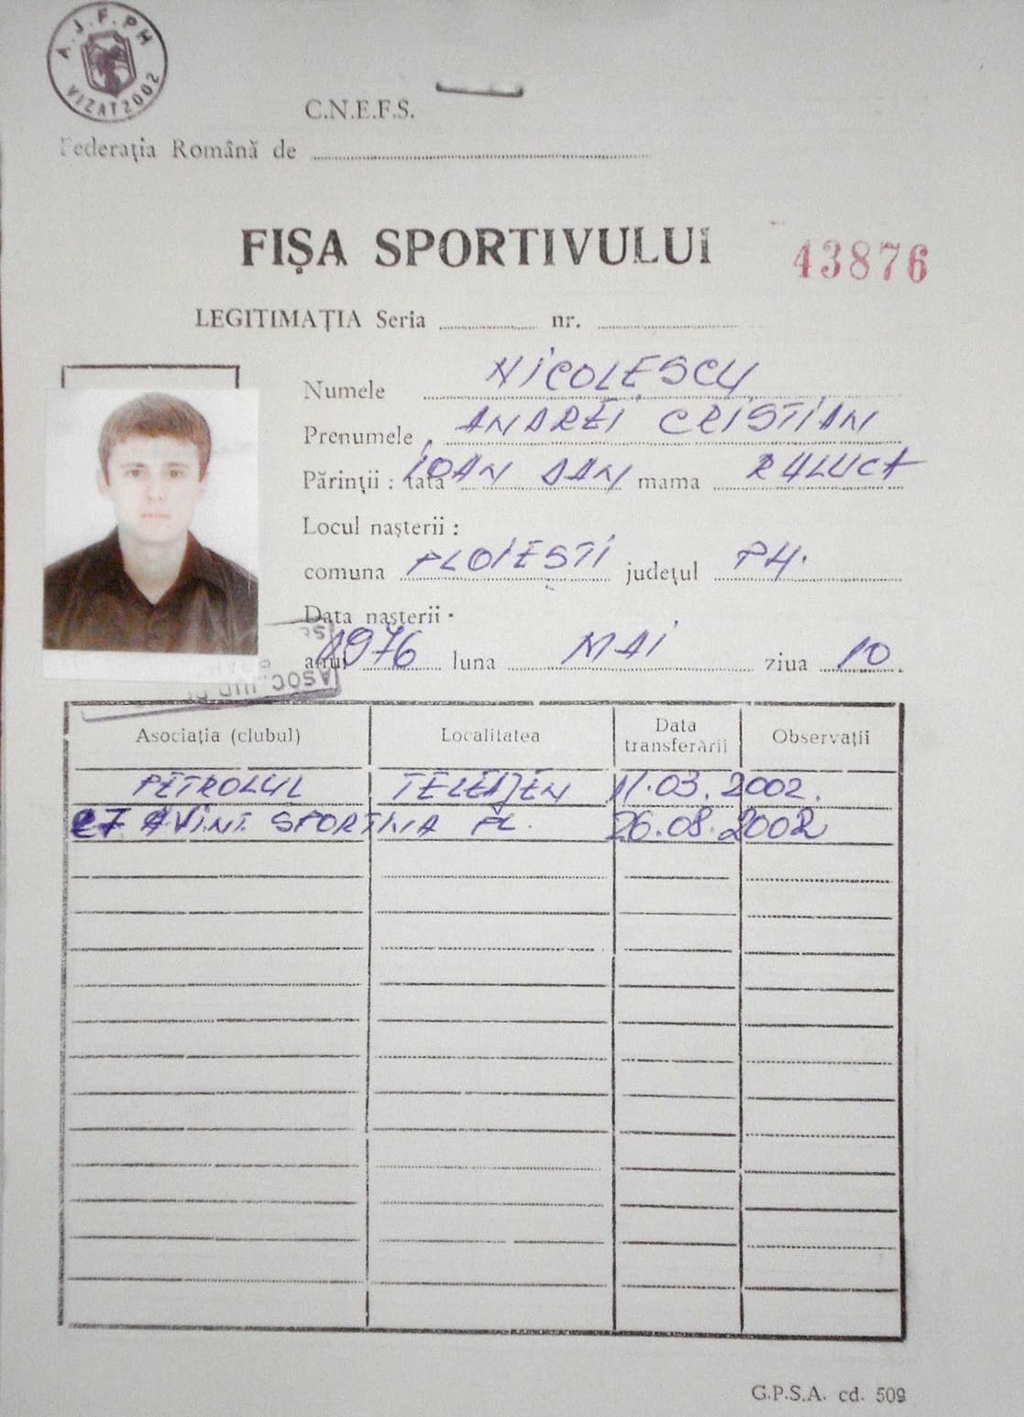 A.J.F. PH
VIZAT 2002
C.N.E.F.S.
Federaţia Română de
FIŞA SPORTIVULUI 43876
LEGITIMAŢIA Seria nr.
Numele NICOLESCU
Prenumele ANDREI CRISTIAN
Părinţii : tata IOAN DAN mama RALUCA
Locul naşterii :
comuna PLOIESTI judeţul PH.
Data naşterii
anul 1976 luna MAI ziua 10
ASOC. JUD.
Asociaţia (clubul) Localitatea Data transferării Observaţii
PETROLUL TELEAJEN 11.03.2002.
PL. 26.08.2002
G.P.S.A. cd. 509